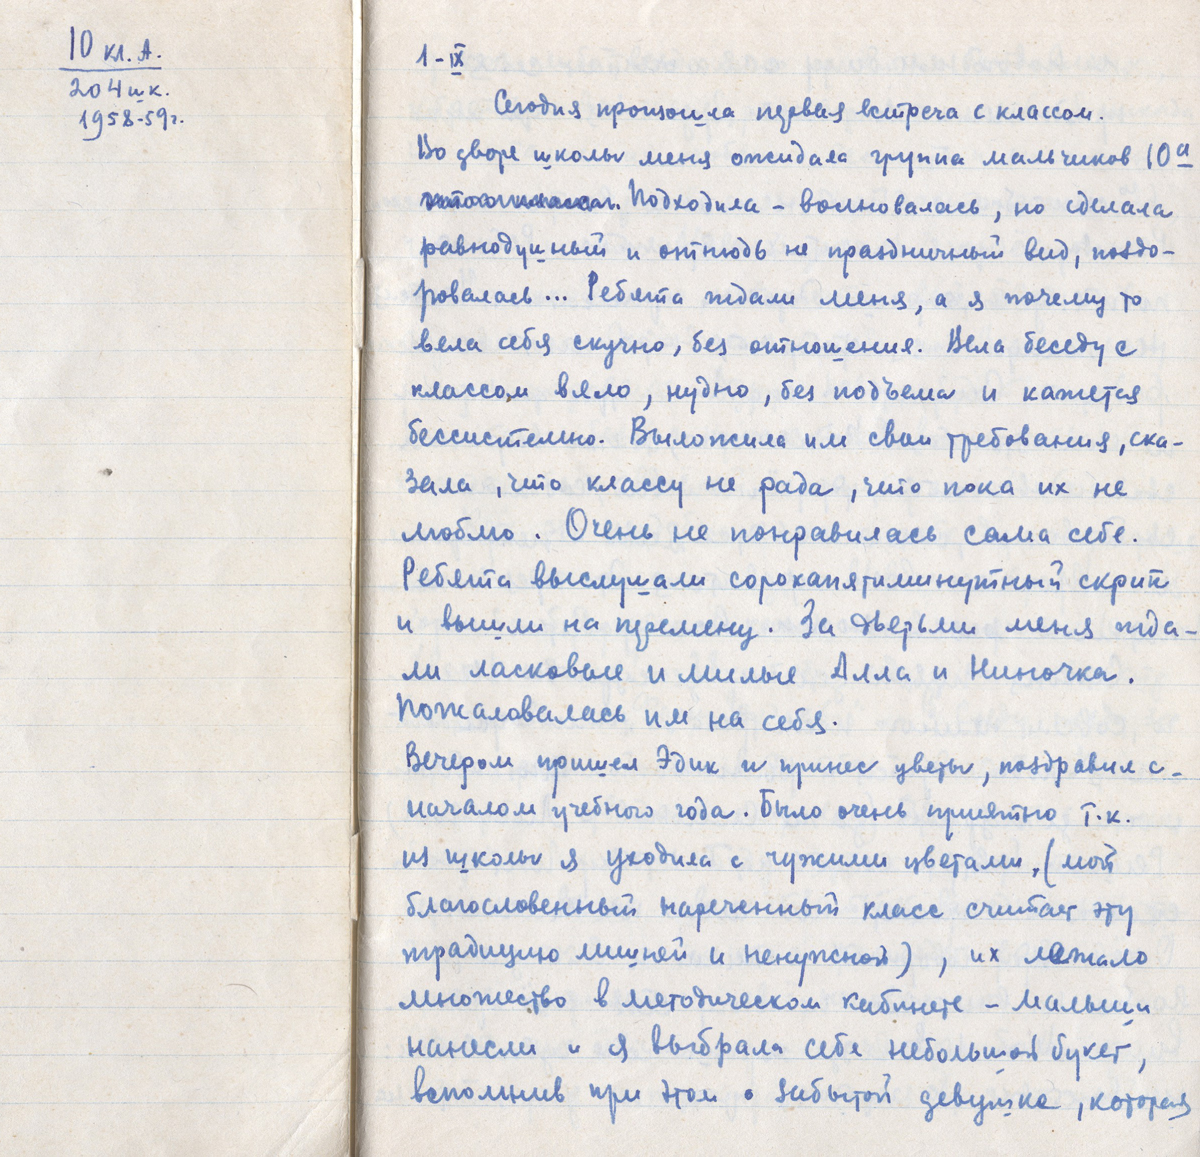 10 кл. А.
204 шк.
1958-59г.
1-IX
Сегодня произошла первая встреча с классом.
Во дворе школы меня ожидала группа мальчиков 10а
Подходила - волновалась, но сделала
равнодушный и отнюдь не праздничный вид, поздо-
ровалась... Ребята ждали меня, а я почему то
вела себя скучно, без отношения. Вела беседу с
классом вяло, нудно, без подъема и кажется
бессистемно. Выложила им свои требования, ска-
зала, что классу не рада, что пока их не
люблю. Очень не понравилась сама себе.
Ребята выслушали сорокапятиминутный скрип
и вышли на перемену. За дверьми меня жда-
ли ласковые и милые Алла и Ниночка.
Пожаловалась им на себя.
Вечером пришел Эдик и принес цветы, поздравил с
началом учебного года. Было очень приятно т.к.
из школы я уходила с чужими цветами, (мой
благословенный нареченный класс считает эту
традицию лишней и ненужной), их лежало
множество в методическом кабинете - малыши
нанесли и я выбрала себе небольшой букет,
вспомнив при этом о забытой девушке, которая